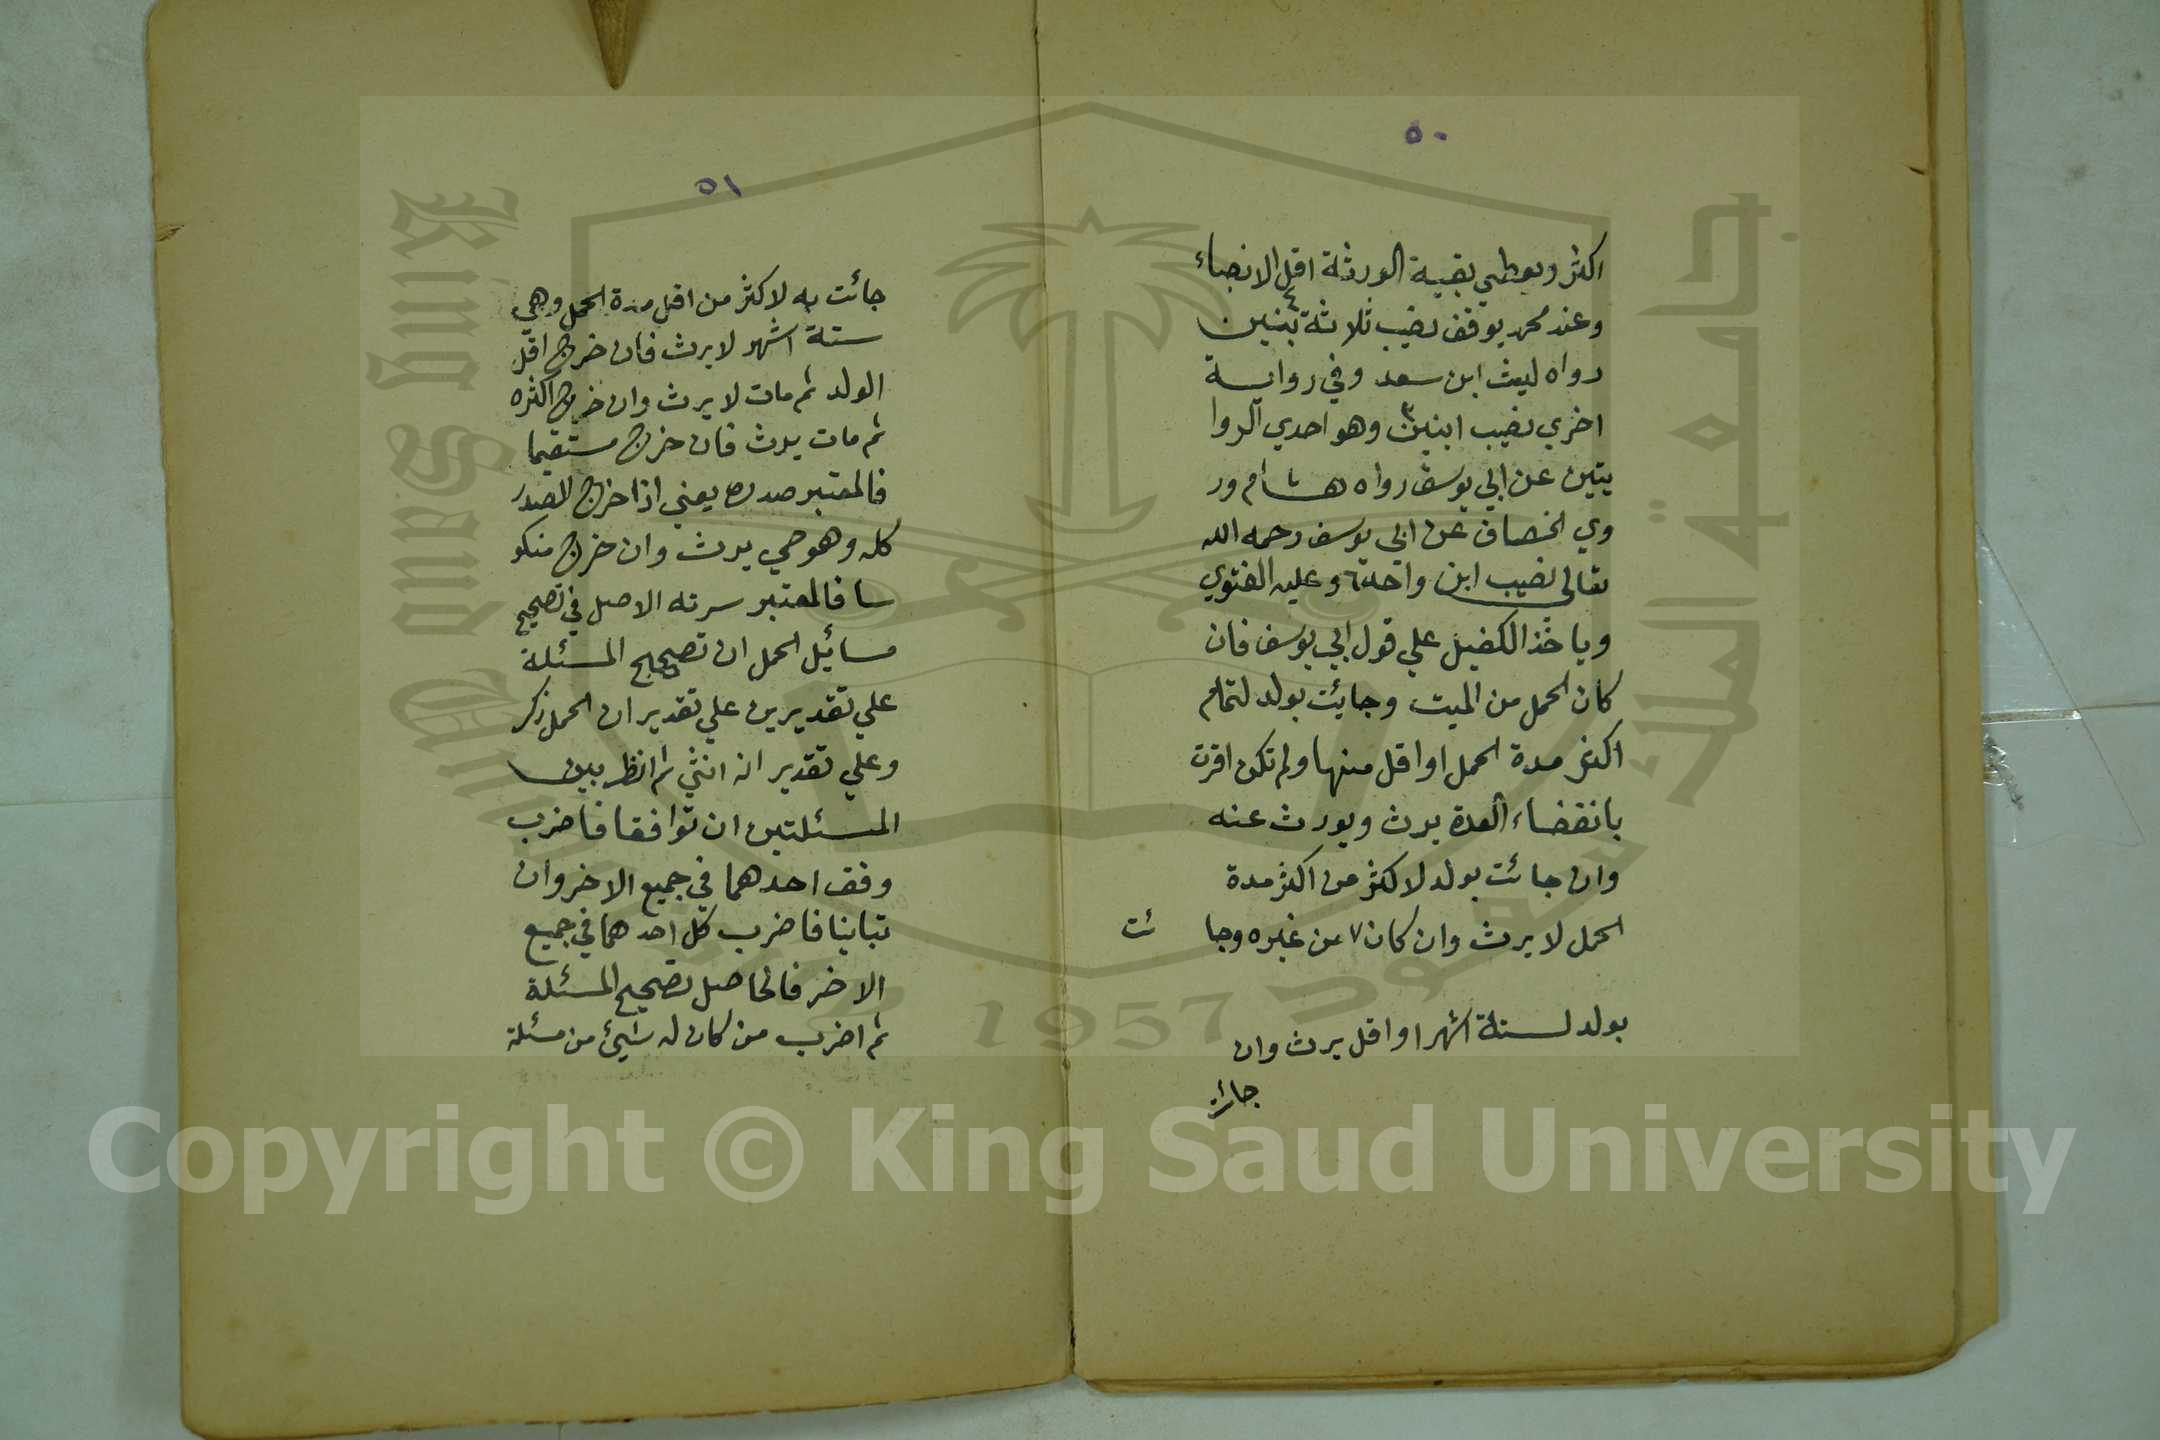 ٥٠
اكثر ويعطي بقية الورثة اقل الانصباء
وعند محمد يوقف نصيب ثلاثة ٤ بنين
رواه ليث ابن سعد وفي رواية
اخري نصيب ابنين ٣ وهو احدي الروا
يتين عن ابي يوسف رواه هشام ور
وي الخصاف عن ابي يوسف رحمه الله
تعالى نصيب ابن واحد ٦ وعليه الفتوي
وياخذ الكفيل علي قول ابي يوسف فان
كان الحمل من الميت وجايئت بولد لتمام
اكثر مدة الحمل او اقل منها ولم تكن اقرت
بانقضاء العدة يرث ويورث عنه
وان جائت بولد لاكثر من اكثر مدة
الحمل لا يرث وان كان ٧ من غيره وجا ئت
بولد لستة اشهر او اقل يرث وان
جائت
٥١
جائت به لاكثر من اقل مدة الحمل وهي
ستة اشهر لا يرث فان خرج اقل
الولد ثم مات لا يرث وان خرج اكثره
ثم مات يرث فان خرج مستقيما
فالمعتبر صدره يعني اذا خرج الصدر
كله وهو حي يرث وان خرج منكو
سا فالمعتبر سرته الاصل في تصحيح
مسائيل الحمل ان تصحيح المسئلة
علي تقديرين علي تقدير ان الحمل زكر
وعلي تقدير انه انثي ثم انظر بين
المسئلتين ان توافقا فاضرب
وفق احدهما في جميع الاخر وان
تباينا فاضرب كل احدهما في جميع
الاخر فالحاصل تصحيح المسئلة
ثم اضرب من كان له شيئ من مسئلة
King Saud University
جامعة الملك سعود
1957
Copyright © King Saud University